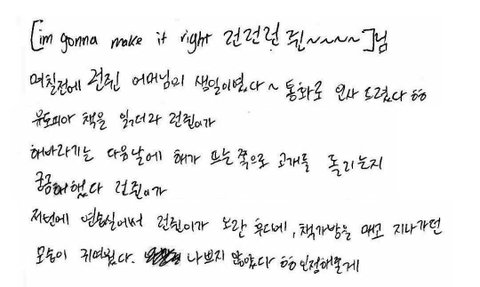 [im gonna make it right 런런런 쥔~~~~]님
며칠전에 런쥔 어머님의 생일이였다~ 통화로 인사 드렸다 ㅎㅎ
유토피아 책을 읽더라 런쥔이가
해바라기는 다음날에 해가 뜨는 쪽으로 고개를 돌리는지
궁금해했다 런쥔이가
저번에 연습실에서 런쥔이가 노란 후드에, 책가방을 매고 지나가던
모습이 귀여웠다. 나쁘지 않았다 ㅎㅎ 인정해줄게